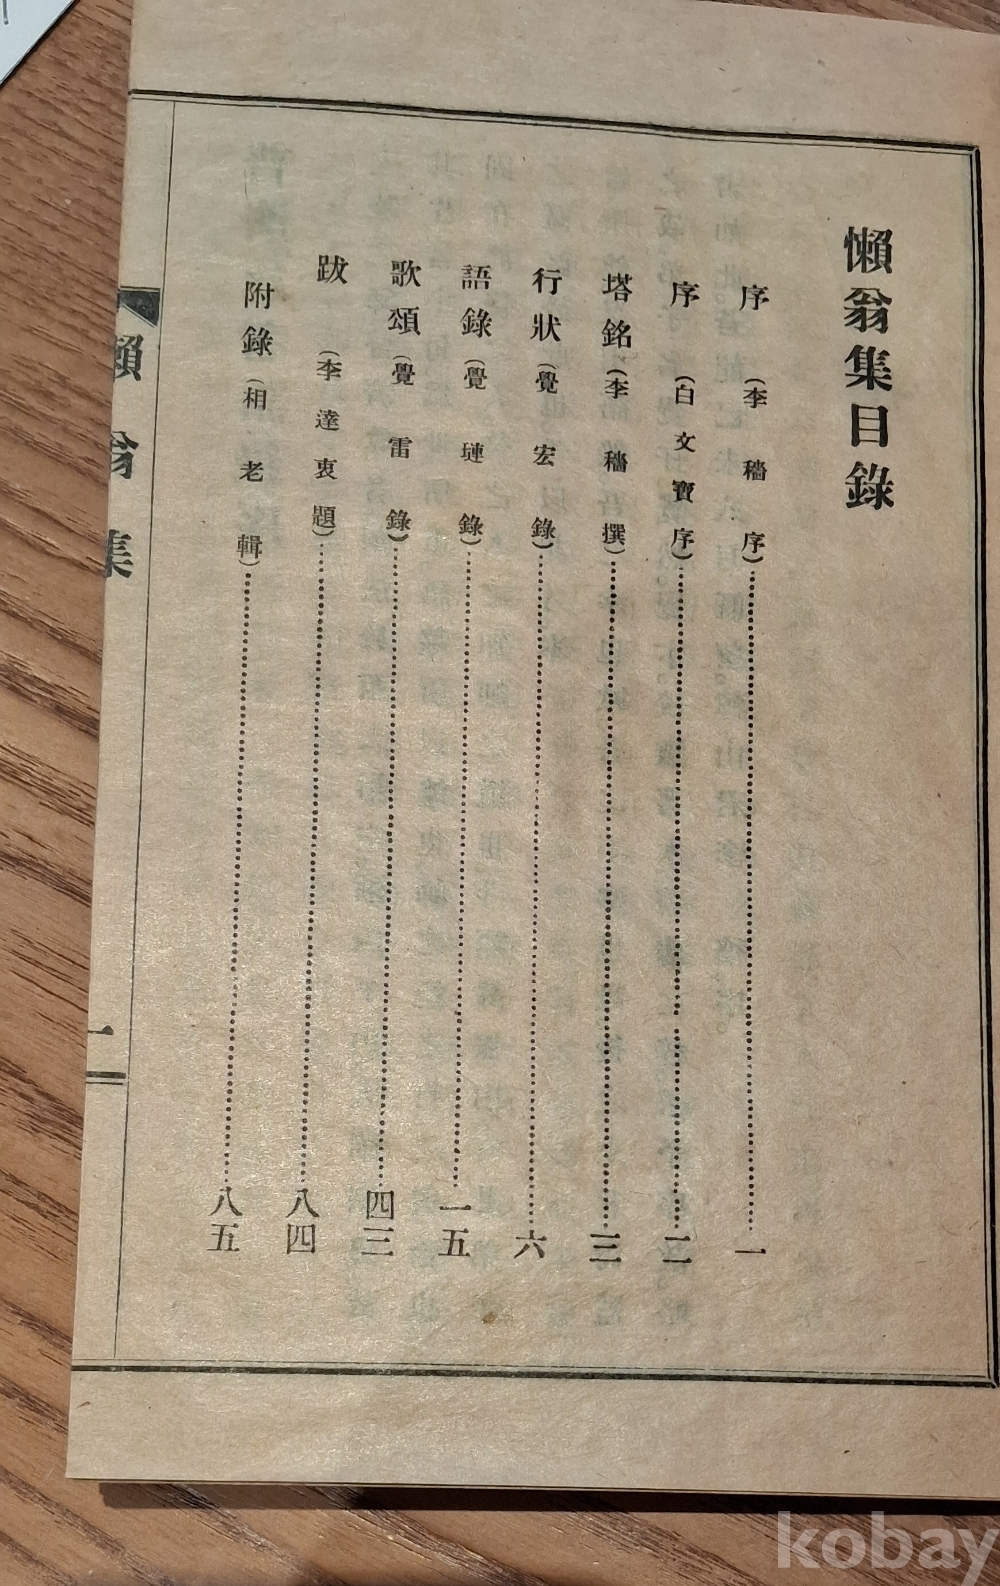 懶翁集目錄
序 (李穡序)……一
序 (白文寶序)……二
塔銘 (李穡撰)……三
行狀 (覺宏錄)……六
語錄 (覺璉錄)……一五
歌頌 (覺雷錄)……四三
跋 (李達衷題)……八四
附錄 (相老輯)……八五
懶翁集
一
kobay